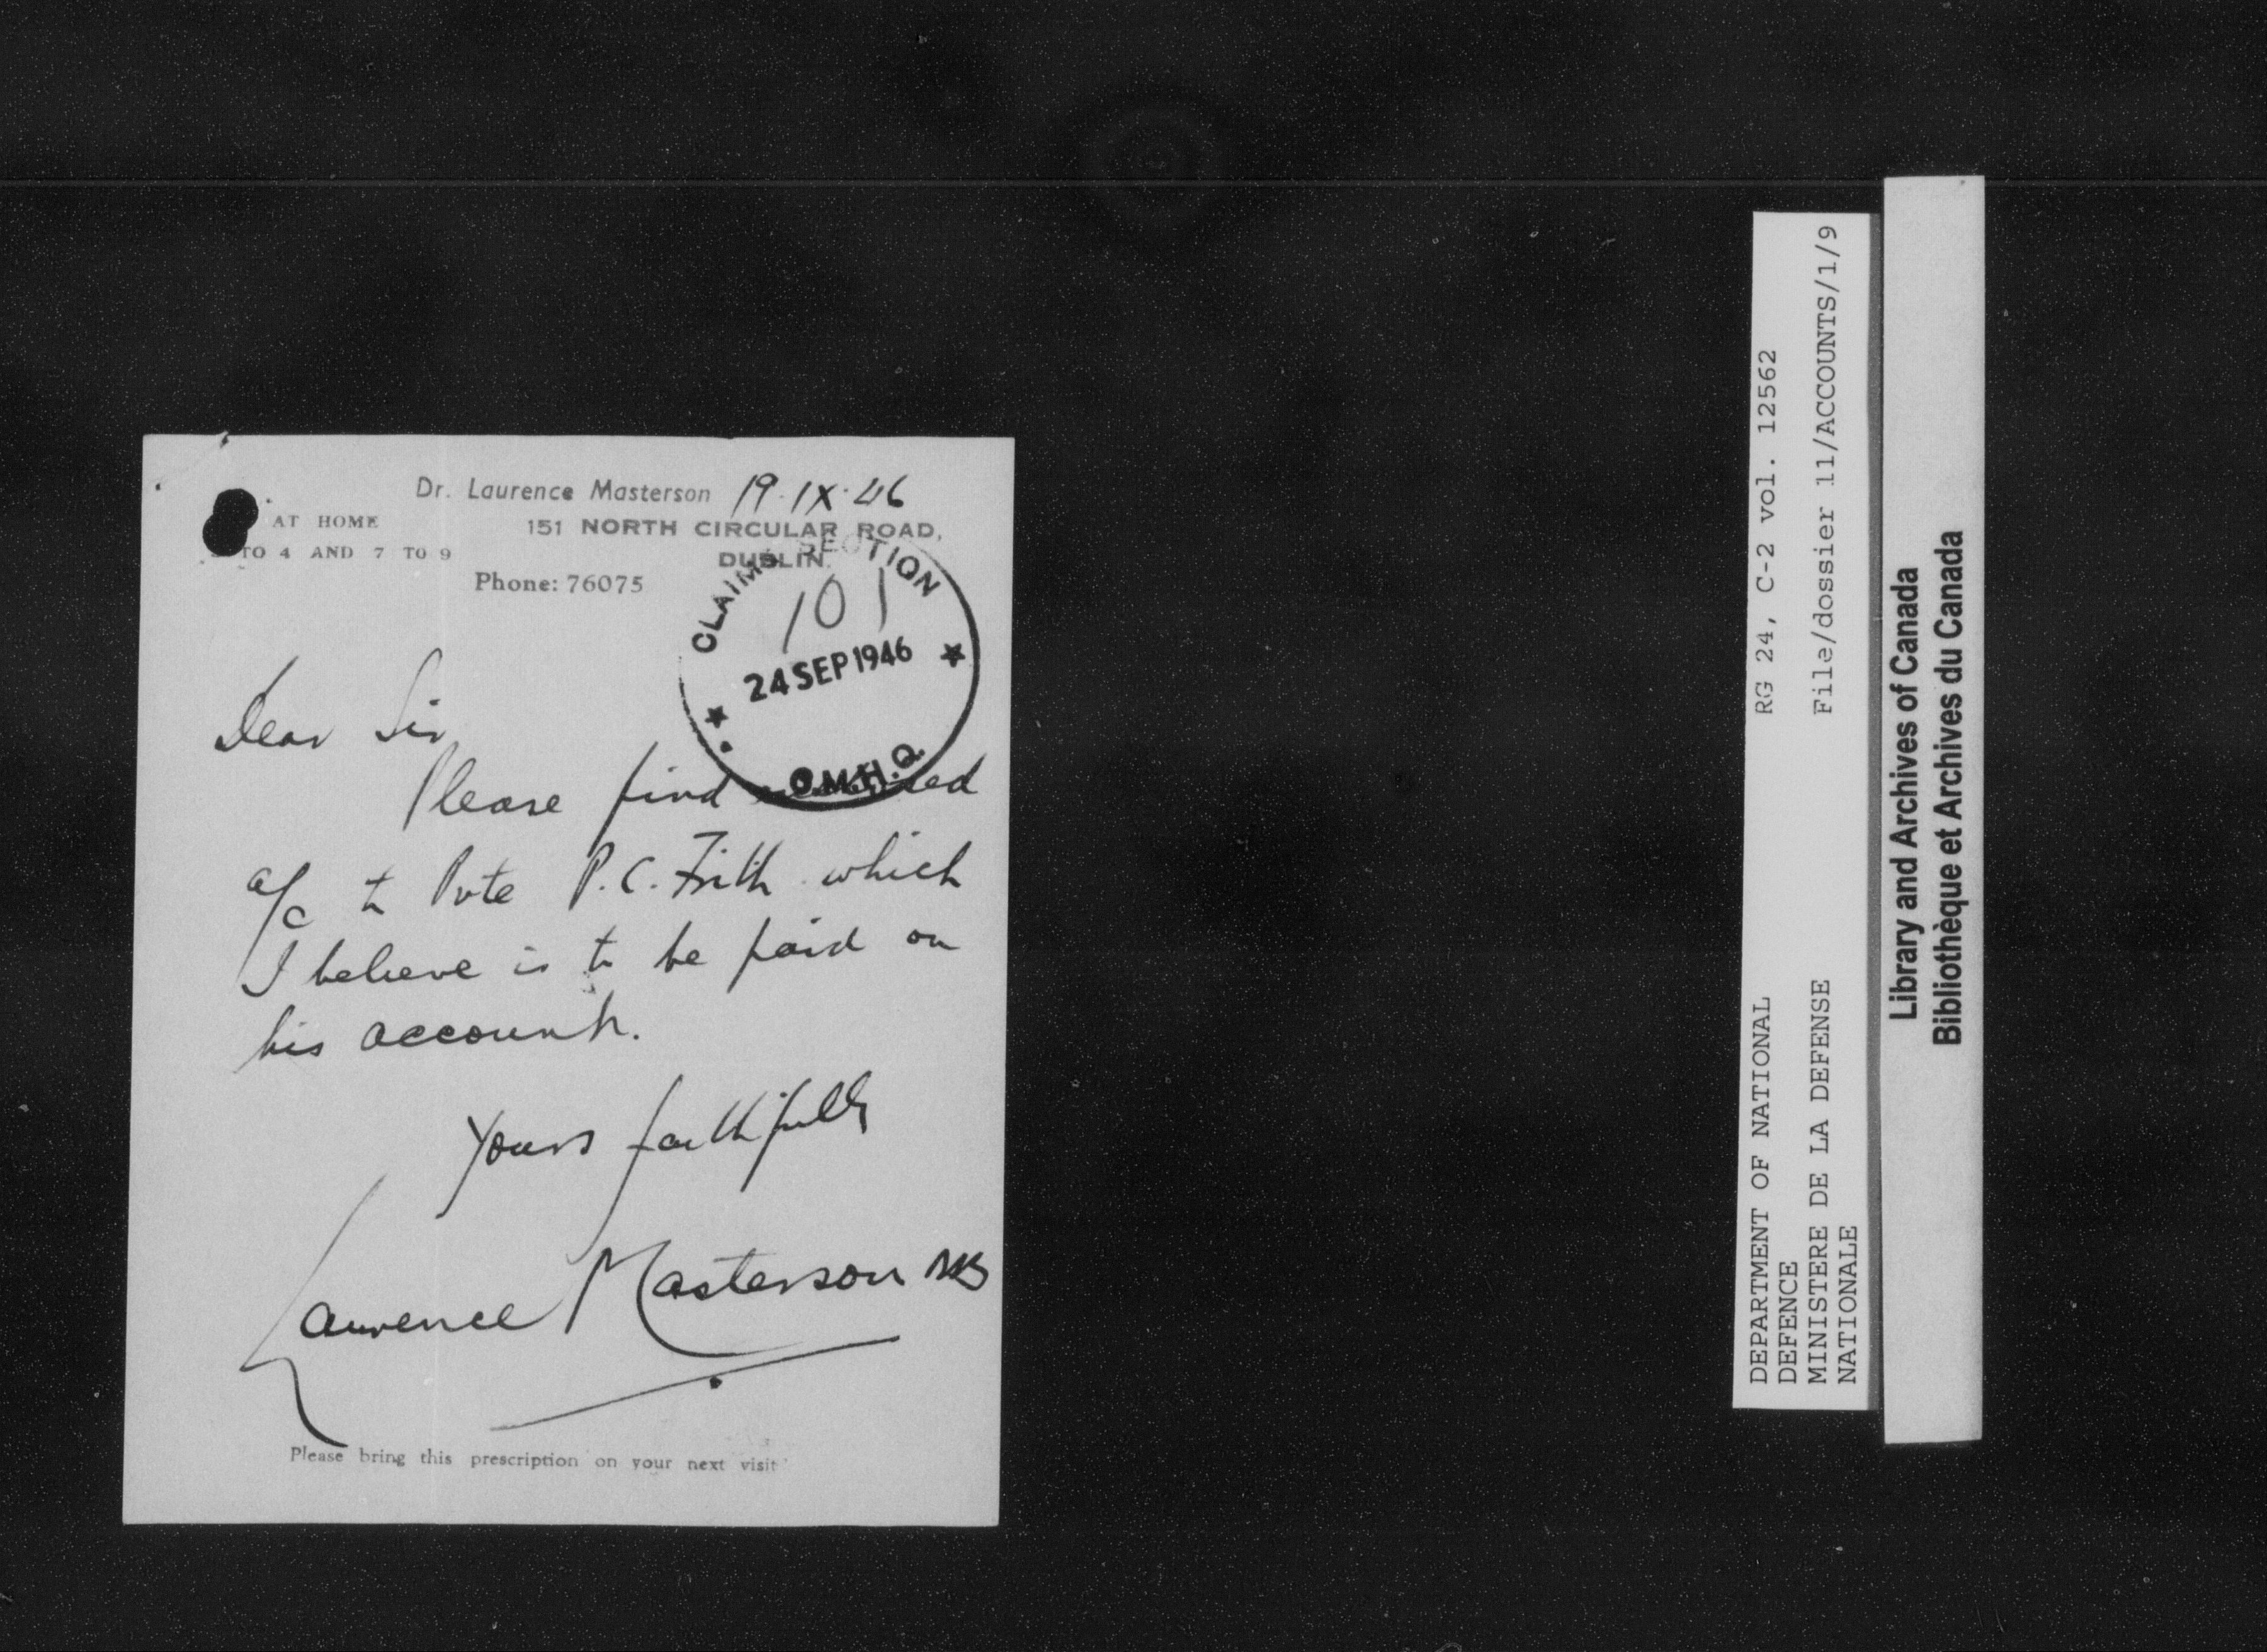 Dr. Laurence Masterson 19.IX.46
AT HOME
TO 4 AND 7 TO 9
151 NORTH CIRCULAR ROAD,
DUBLIN.
Phone: 76075
CLAIMS SECTION
101
24 SEP 1946
O.M.H.Q.
Dear Sir
Please find enclosed
a/c to Pvte P.C. Frith which
I believe is to be paid on
his account.
Yours faithfully
Laurence Masterson MB
Please bring this prescription on your next visit
RG 24, C-2 vol. 12562
File/dossier 11/ACCOUNTS/1/9
DEPARTMENT OF NATIONAL
DEFENCE
MINISTERE DE LA DEFENSE
NATIONALE
Library and Archives of Canada
Bibliothèque et Archives du Canada